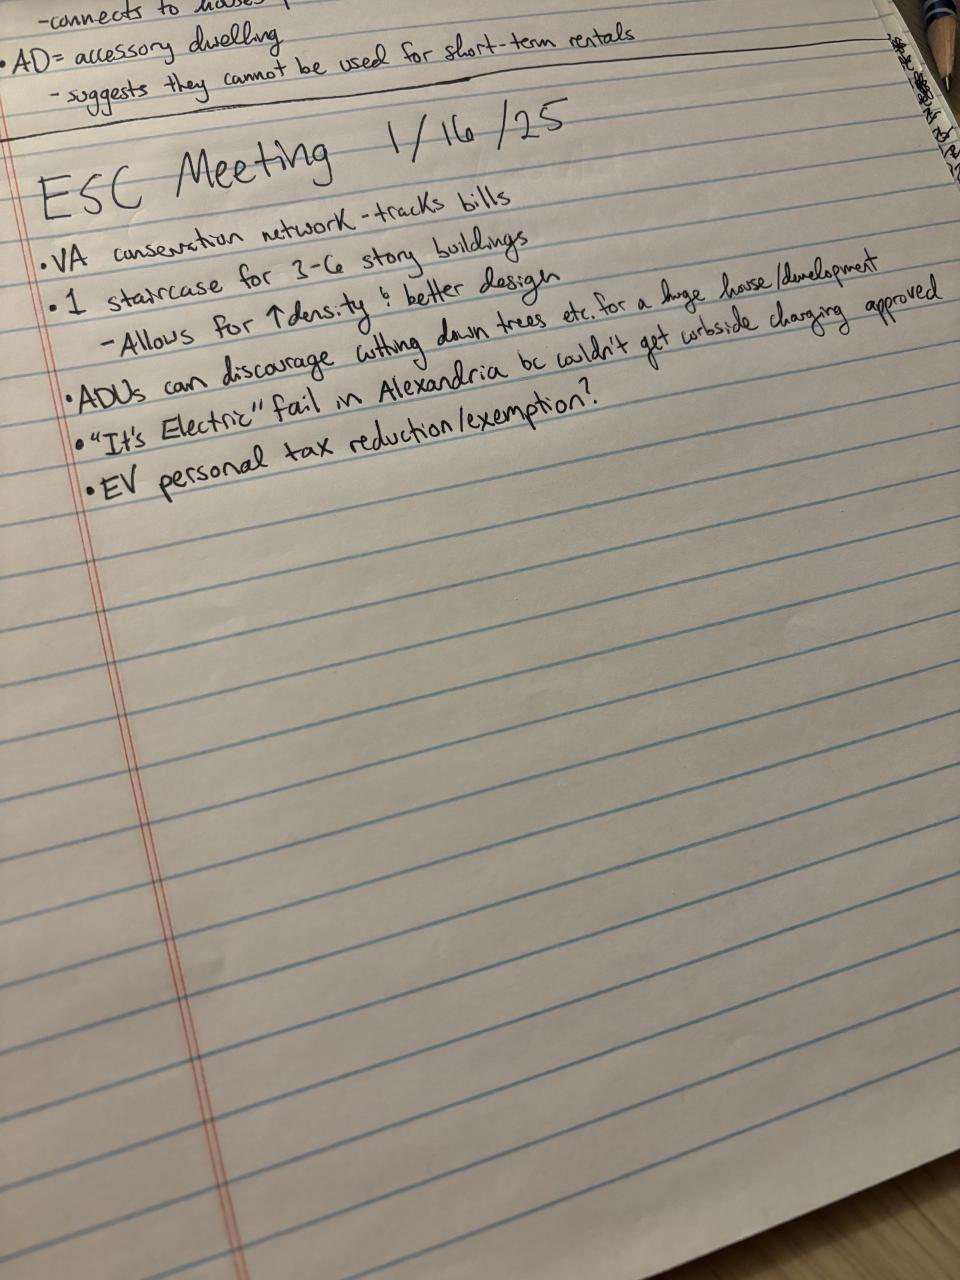 -connects to
• AD= accessory dwelling
- suggests they cannot be used for short-term rentals
ESC Meeting 1/16/25
• VA conservation network - tracks bills
• 1 staircase for 3-6 story buildings
- Allows for ↑density & better design
• ADUs can discourage cutting down trees etc. for a huge house/development
• "It's Electric" fail in Alexandria bc couldn't get curbside charging approved
• EV personal tax reduction/exemption?